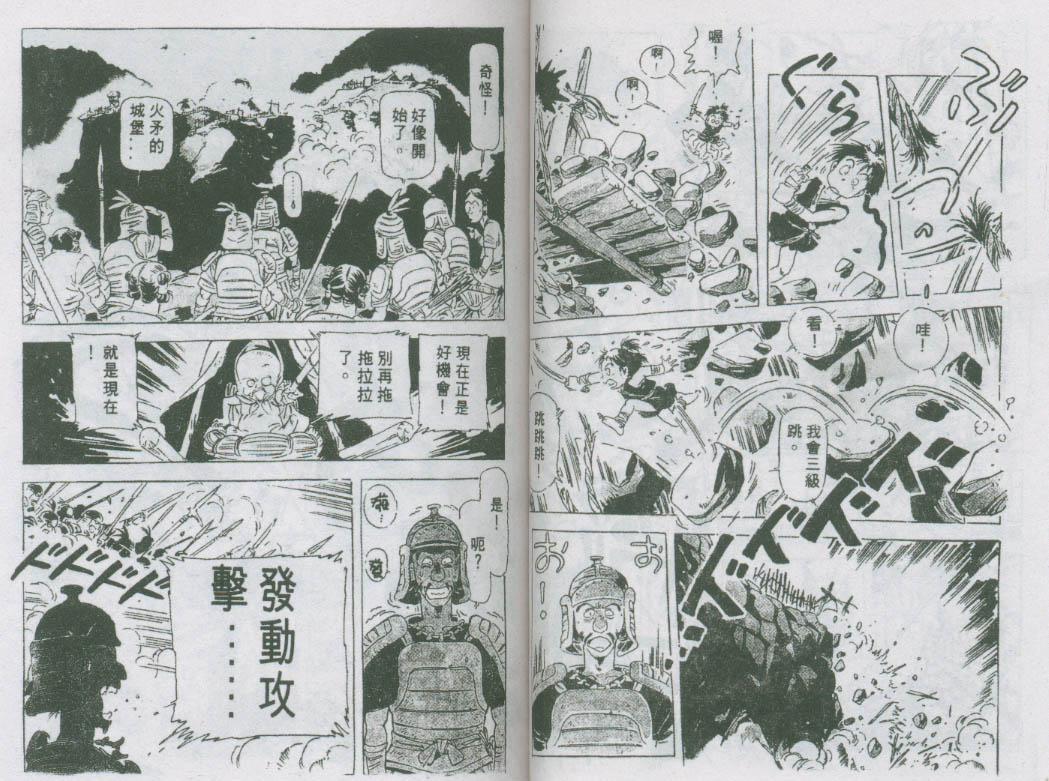 ぶつ
ぐらっ
喔！
啊！
啊！
哇！
看！
我會三級
跳。
跳跳跳！
ズズズズズズ
おお！
奇怪！
好像開
始了。
……
火矛的
城堡…
現在正是
好機會！
別再拖
拖拉拉
了。
就是現在
！
是！
呃？
發動攻
擊……
ドドドド